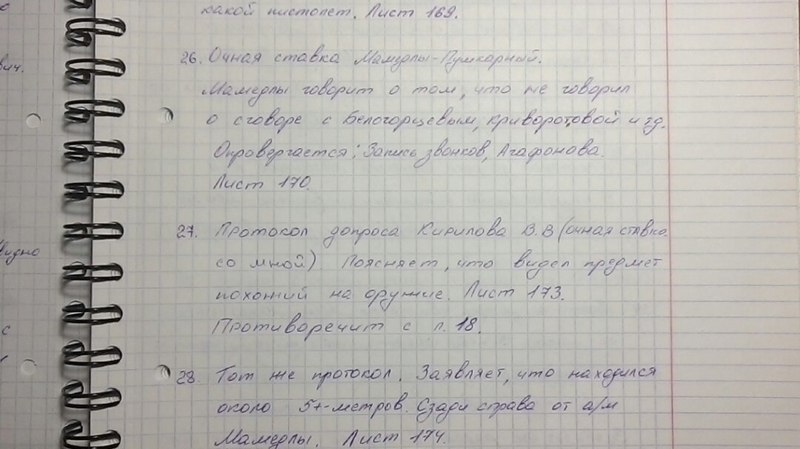 какой пистолет. Лист 169.
вич.
26. Очная ставка Мамедлы-Пушкарный.
Мамедлы говорит о том, что не говорил
о сговоре с Белогорцевым, Криворотовой и тд.
Опровергается: Запись звонков, Агафонова.
Лист 170.
27. Протокол допроса Кирилова В.В (очная ставка
со мной) Поясняет, что видел предмет
похожий на оружие. Лист 173.
Противоречит с л. 18.
28. Тот же протокол. Заявляет, что находился
около 5+-метров. Сзади справа от а/м
Мамедлы. Лист 174.